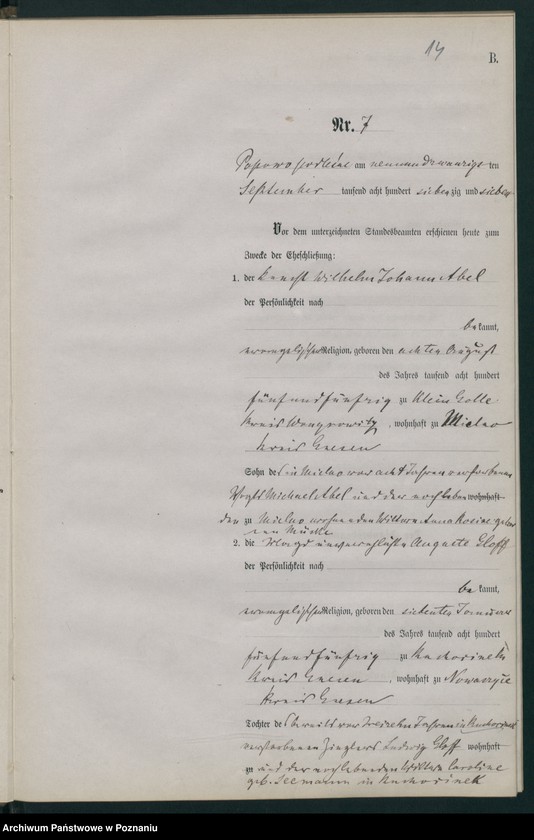 14
B.
Nr. 7
Popowo podleśne am neunundzwanzigsten
September tausend acht hundert siebenzig und sieben
Vor dem unterzeichneten Standesbeamten erschienen heute zum
Zwecke der Eheschließung:
1. der Knecht Wilhelm Johann Abel
der Persönlichkeit nach
bekannt,
evangelischer Religion, geboren den achten August
des Jahres tausend acht hundert
fünfundfünfzig zu Klein Golle
Kreis Wongrowitz, wohnhaft zu Mielno
Kreis Gnesen
Sohn des in Mielno vor acht Jahren verstorbenen
Vogts Michael Abel und der noch lebenden wohnhaft
zu Mielno wohnenden Wittwe Anna Rosine gebor
enen
2. die Magd unverehelichte Auguste Gloff
der Persönlichkeit nach
bekannt,
evangelischer Religion, geboren den siebenten Januar
des Jahres tausend acht hundert
fünfundfünfzig zu Kuchorinek
Kreis Gnesen, wohnhaft zu
Kreis Gnesen
Tochter des bereits vor Jahren in Kuchorinek
verstorbenen Zieglers Ludwig Gloff wohnhaft
zu und der noch lebenden Wittwe Caroline
geb. Seemann in Kuchorinek
Archiwum Państwowe w Poznaniu